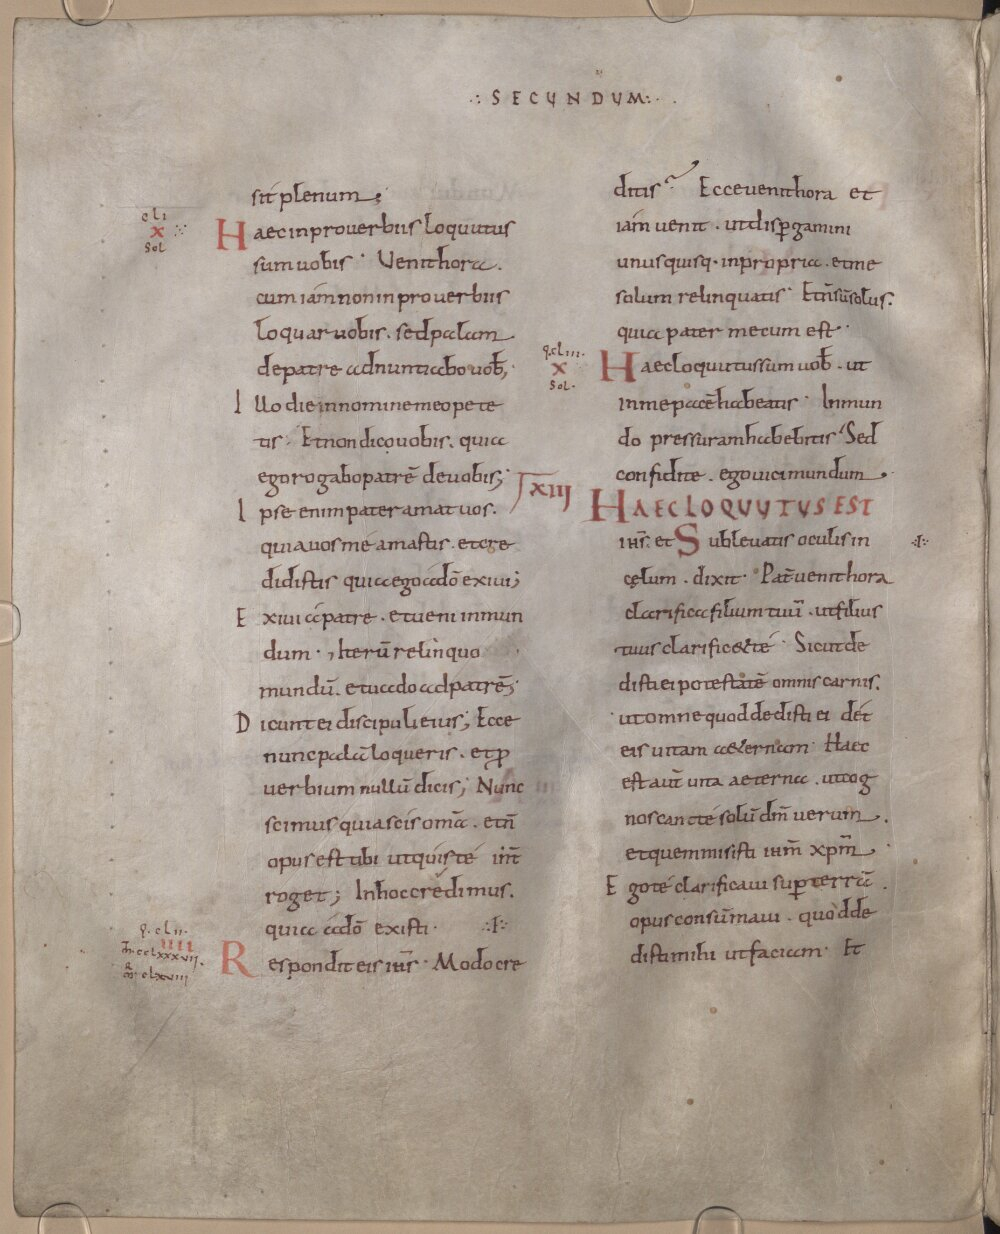 ∴ SECUNDUM ∴
sit plenum;
cli
x
Sol
Haec in prouerbiis loquutus
sum uobis · Uenit hora .
cum iam non in prouerbiis
loquar uobis . sed palam
de patre adnuntiabo uob̄;
Illo die in nomine meo pete
tis · Et non dico uobis . quia
ego rogabo patrē de uobis;
Ipse enim pater amat uos .
quia uos me amastis . et cre
didistis quia ego a dō exiui;
Exiui a patre . et ueni in mun
dum · , Iterū relinquo
mundū . et uado ad patrē;
Dicunt ei discipuli eius; Ecce
nunc palā loqueris . et p
uerbium nullū dicis; Nunc
scimus quia scis omā . et n̄
opus est tibi ut quis te int̄
roget; In hoc credimus .
quia a dō existi ·
q. clii.
Respondit eis ihs̄ · Modo cre
ditis Ecce uenit hora et
iam uenit . ut dispgamini
unusquisq· in propria . et me
solum relinquatis · Et n̄ sū solus .
quia pater mecum est ·
q. cliii.
x
Sol.
Haec loquutus sum uob̄ . ut
in me pacē habeatis · In mun
do pressuram habebitis Sed
confidite . ego uici mundum .
xiii
HAEC LOQUUTUS EST
ihs̄. et Subleuatis oculis in
cęlum . dixit · Pat̄ uenit hora
clarifica filium tuū . ut filius
tuus clarificet te · Sicut de
disti ei potestatē omnis carnis .
ut omne quod dedisti ei det
eis uitam aeternam · Haec
est aut̄ uita aeterna . ut cog
noscant te solū dm̄ uerum .
et quem misisti ihm̄ xpm̄ .
Ego te clarificaui sup terrā .
opus consūmaui . quod de
disti mihi ut faciam · Et